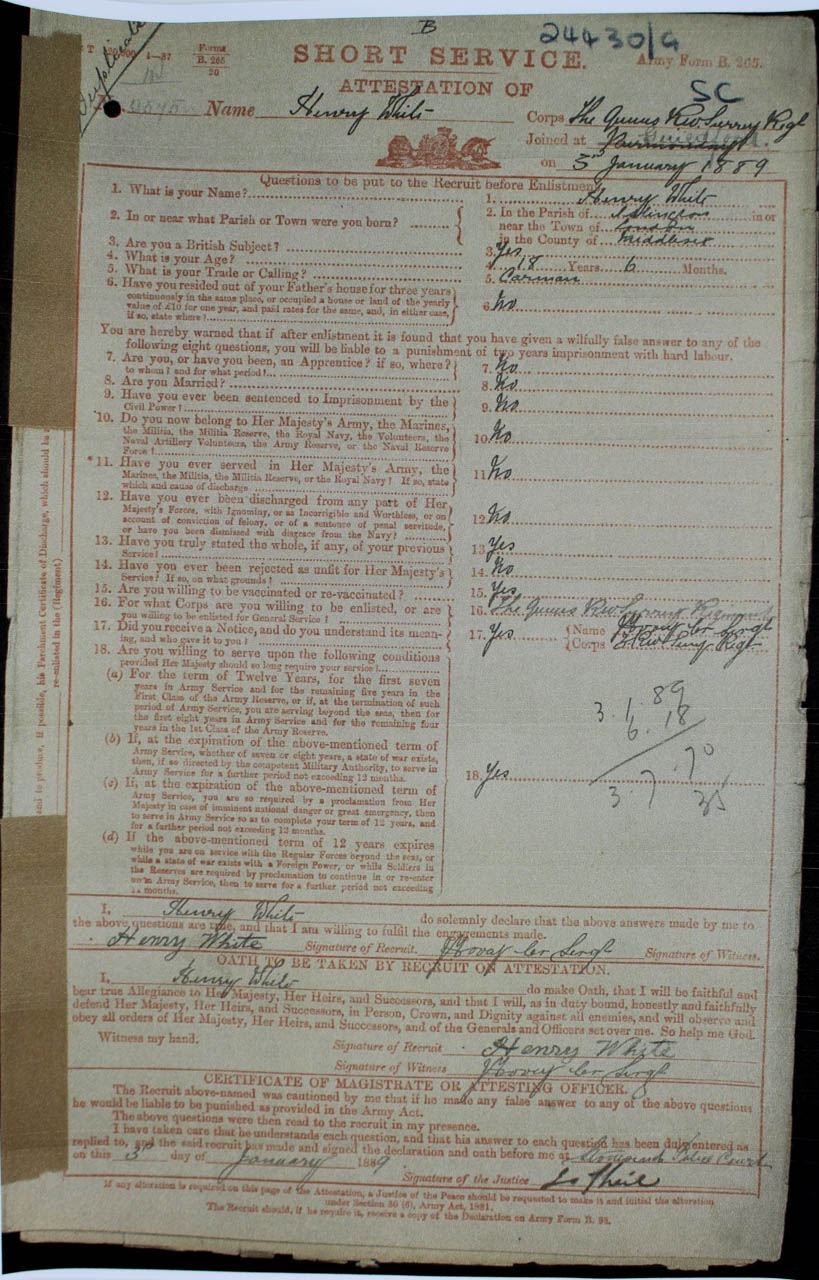 B
24430/9
Duplicate
1—87
Forms
B. 265
20
SHORT SERVICE.
Army Form B. 265.
ATTESTATION OF
SC
Name Henry White Corps The Queens Rl W Surrey Regt
Joined at
on 3rd January 1889
Questions to be put to the Recruit before Enlistment.
1. What is your Name? 1. Henry White
2. In or near what Parish or Town were you born? 2. In the Parish of Islington in or
near the Town of London
in the County of Middlesex
3. Are you a British Subject? 3. Yes
4. What is your Age? 4. 18 Years 6 Months.
5. What is your Trade or Calling? 5. Carman
6. Have you resided out of your Father's house for three years
continuously in the same place, or occupied a house or land of the yearly
value of £10 for one year, and paid rates for the same, and, in either case,
if so, state where? 6. No
You are hereby warned that if after enlistment it is found that you have given a wilfully false answer to any of the
following eight questions, you will be liable to a punishment of two years imprisonment with hard labour.
7. Are you, or have you been, an Apprentice? if so, where?
to whom? and for what period? 7. No
8. Are you Married? 8. No
9. Have you ever been sentenced to Imprisonment by the
Civil Power? 9. No
10. Do you now belong to Her Majesty's Army, the Marines,
the Militia, the Militia Reserve, the Royal Navy, the Volunteers, the
Naval Artillery Volunteers, the Army Reserve, or the Naval Reserve
Force? 10. No
*11. Have you ever served in Her Majesty's Army, the
Marines, the Militia, the Militia Reserve, or the Royal Navy? If so, state
which and cause of discharge 11. No
12. Have you ever been discharged from any part of Her
Majesty's Forces, with Ignominy, or as Incorrigible and Worthless, or on
account of conviction of felony, or of a sentence of penal servitude,
or have you been dismissed with disgrace from the Navy? 12. No
13. Have you truly stated the whole, if any, of your previous
Service? 13. Yes
14. Have you ever been rejected as unfit for Her Majesty's
Service? If so, on what grounds? 14. No
15. Are you willing to be vaccinated or re-vaccinated? 15. Yes
16. For what Corps are you willing to be enlisted, or are
you willing to be enlisted for General Service? 16. The Queens Rl W Surrey Regiment
17. Did you receive a Notice, and do you understand its mean-
ing, and who gave it to you? 17. Yes Name Sergt
Corps Regt
18. Are you willing to serve upon the following conditions
provided Her Majesty should so long require your service?
(a) For the term of Twelve Years, for the first seven
years in Army Service and for the remaining five years in the
First Class of the Army Reserve, or if, at the termination of such
period of Army Service, you are serving beyond the seas, then for
the first eight years in Army Service and for the remaining four
years in the 1st Class of the Army Reserve.
(b) If, at the expiration of the above-mentioned term of
Army Service, whether of seven or eight years, a state of war exists,
then, if so directed by the competent Military Authority, to serve in
Army Service for a further period not exceeding 12 months.
(c) If, at the expiration of the above-mentioned term of
Army Service, you are so required by a proclamation from Her
Majesty in case of imminent national danger or great emergency, then
to serve in Army Service so as to complete your term of 12 years, and
for a further period not exceeding 12 months.
(d) If the above-mentioned term of 12 years expires
while you are on service with the Regular Forces beyond the seas, or
while a state of war exists with a Foreign Power, or while Soldiers in
the Reserves are required by proclamation to continue in or re-enter
upon Army Service, then to serve for a further period not exceeding
12 months.
3. 1. 89
6. 18
18. Yes
3. 7. 70
I, Henry White do solemnly declare that the above answers made by me to
the above questions are true, and that I am willing to fulfil the engagements made.
Henry White Signature of Recruit. Sergt Signature of Witness.
OATH TO BE TAKEN BY RECRUIT ON ATTESTATION.
I, Henry White do make Oath, that I will be faithful and
bear true Allegiance to Her Majesty, Her Heirs, and Successors, and that I will, as in duty bound, honestly and faithfully
defend Her Majesty, Her Heirs, and Successors, in Person, Crown, and Dignity against all enemies, and will observe and
obey all orders of Her Majesty, Her Heirs, and Successors, and of the Generals and Officers set over me. So help me God.
Witness my hand.
Signature of Recruit Henry White
Signature of Witness Sergt
CERTIFICATE OF MAGISTRATE OR ATTESTING OFFICER.
The Recruit above-named was cautioned by me that if he made any false answer to any of the above questions
he would be liable to be punished as provided in the Army Act.
The above questions were then read to the recruit in my presence.
I have taken care that he understands each question, and that his answer to each question has been duly entered as
replied to, and the said recruit has made and signed the declaration and oath before me at Police Court
on this 3rd day of January 1889
Signature of the Justice
If any alteration is required on this page of the Attestation, a Justice of the Peace should be requested to make it and initial the alteration
under Section 80 (6), Army Act, 1881.
The Recruit should, if he require it, receive a copy of the Declaration on Army Form B. 93.
if possible, his Parchment Certificate of Discharge, which should be
re-enlisted in the (Regiment)